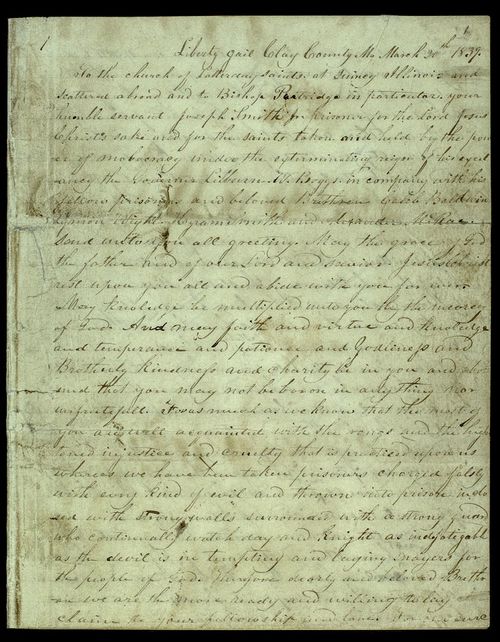 1
Liberty Jail Clay County Mo March 20th 1839.
To the church of Latterday saints at Quincy Illinois and
scatered abroad and to Bishop Partridge in particular, your
humble servant Joseph Smith Jr prisoner for the Lord Jesus
Christ's sake and for the saints taken and held by the pow
er of mobocracy under the exterminating reign of his excel
ancy the Governer Lilburn W. Boggs in company with his
fellow prisoners and beloved Brethren Caleb Baldwin
Lymon Wight, Hyram Smith and Alexander McRae.
Send unto you all greeting May the grace of God
the father and of our Lord and savior Jesus Christ
rest upon you all and abide with you for ever.
May knoledge be multiplied unto you by the meorcy
of God. And may faith and virtue and knoledge
and temperance and patience and Godliness and
Brotherly kindness and charity be in you and abo
und that you may not be baron in anything nor
unfrutefull. it as much as we know that the most of
you are well acquainted with the rongs and the high
toned injustice and cruelty that is practiced upon us
whereas we have been taken prisoners charged falsly
with evry kind of evil and thrown into prison inclo
sed with strong walls surrounded with a strong guard
who continually watch day and knight as indefatigable
as the devil is in tempting and laying snayers for
the people of God. Therefore dearly and beloved Brethr
en we are the more ready and willing to lay
claim to your fellowship and love. For our curc